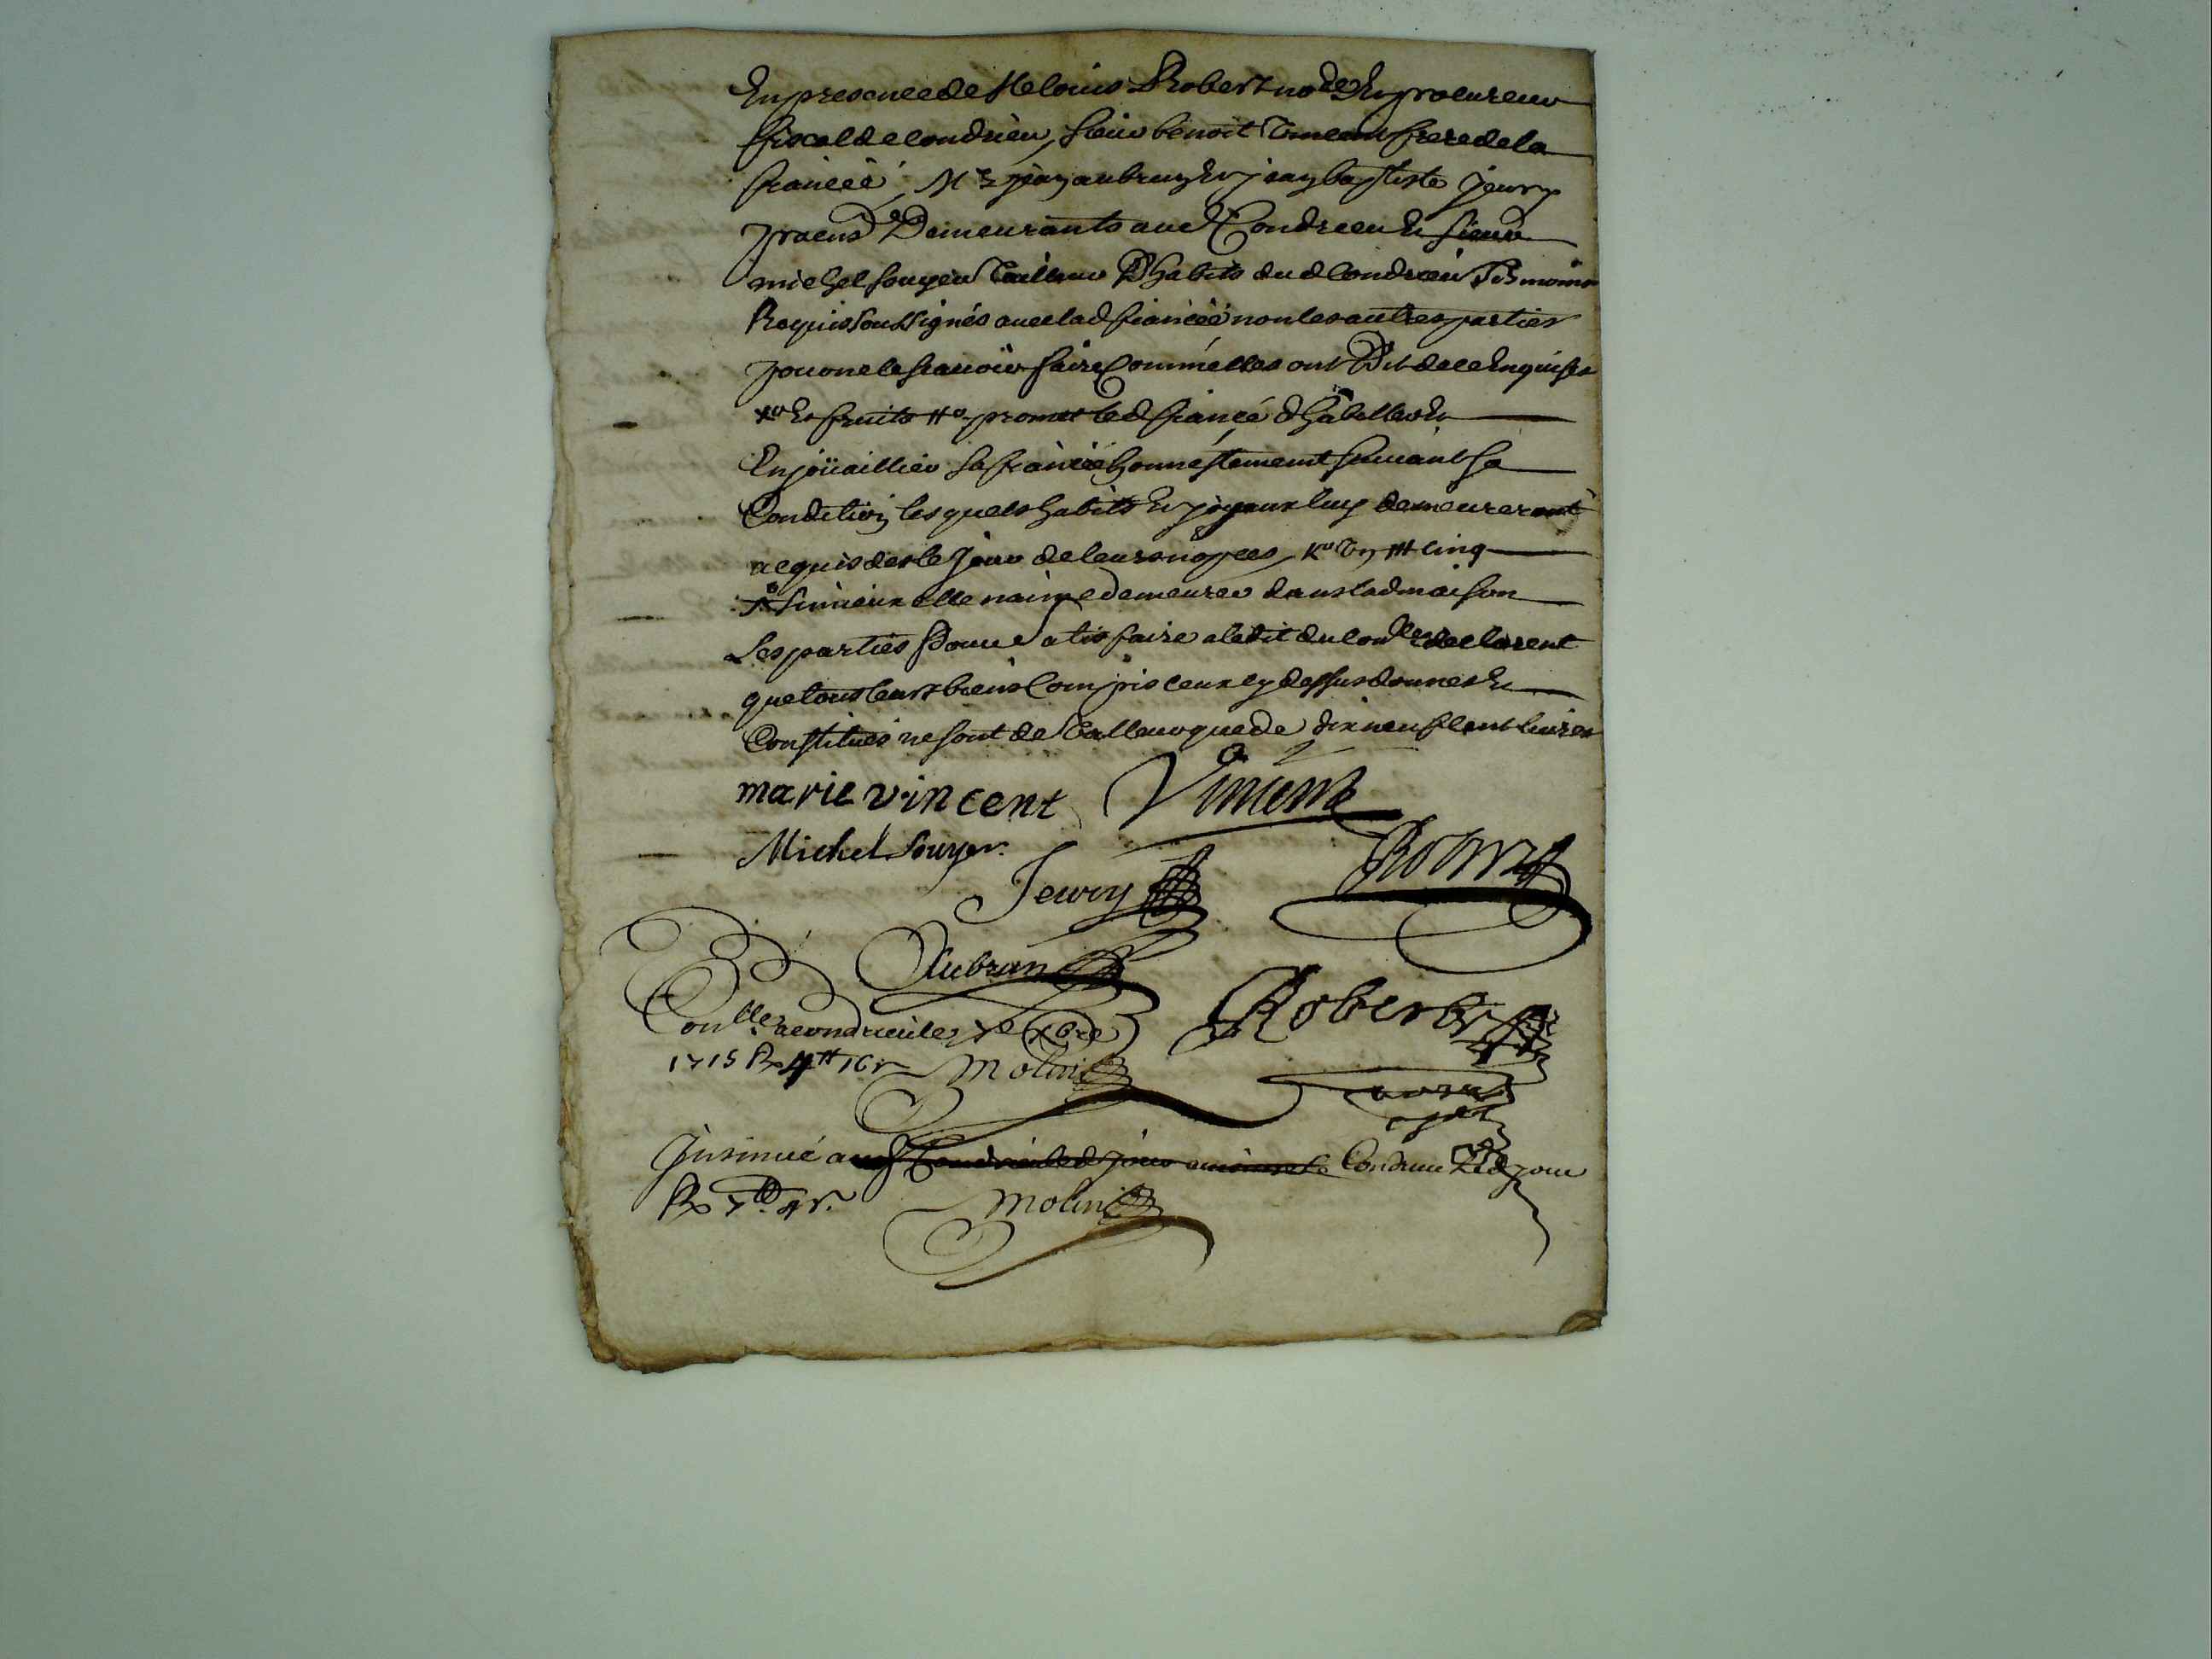 En presence de Me louis Robert nore Et procureur
fiscal de condrieu, sieur benoit Vincent frere de la
fiancée, Mrs jean aubrun Et jean baptiste Jeury
praens Demeurants aud Condrieu Et sieur
michel souyer Tailleur D'habits dud Condrieu Tesmoins
Requis soussignés avec lad fiancéé non les autres parties
pour ne le scavoir faire Comme elles ont Dit de ce Enquises
Et fruits promet led fiancé d'habiller Et
Enjoüaillier sa fiancée honnestement suivant sa
Condition lesquels habits Et joyaux luy demeureront
acquis des le jour de leurs nopces, cinq
si mieux elle n'aime demeurer dans lad maison
Les parties pour satisfaire a ledit du conlle declarent
que tous leurs biens Compris ceux cy dessus donnes Et
Constitués ne sont de valleur que de dix neuf cent livres
marie vincent Vincent
Michel souyer
Jeury
Aubrun
Robert
Conllé a condrieu le xbre
1715 R 4tt 16s Molin
Insinué a Condrieu led jour
R Molin